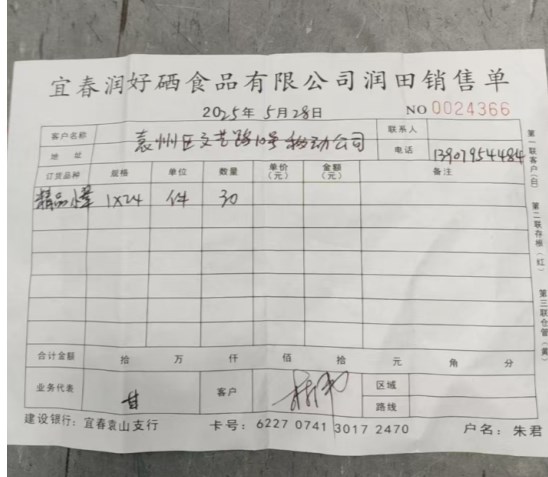 宜春润好硒食品有限公司润田销售单
2025年5月28日 NO 0024366
客户名称 联系人
袁州区文艺路10号移动公司
地址 电话 13907954484
订货品种 规格 单位 数量 单价（元） 金额（元） 备注
精品 1X24 件 30
合计金额 拾 万 仟 佰 拾 元 角 分
业务代表 甘 客户 区域
路线
建设银行：宜春袁山支行 卡号：6227 0741 3017 2470 户名：朱君
第一联客户（白） 第二联存根（红） 第三联仓管（黄）